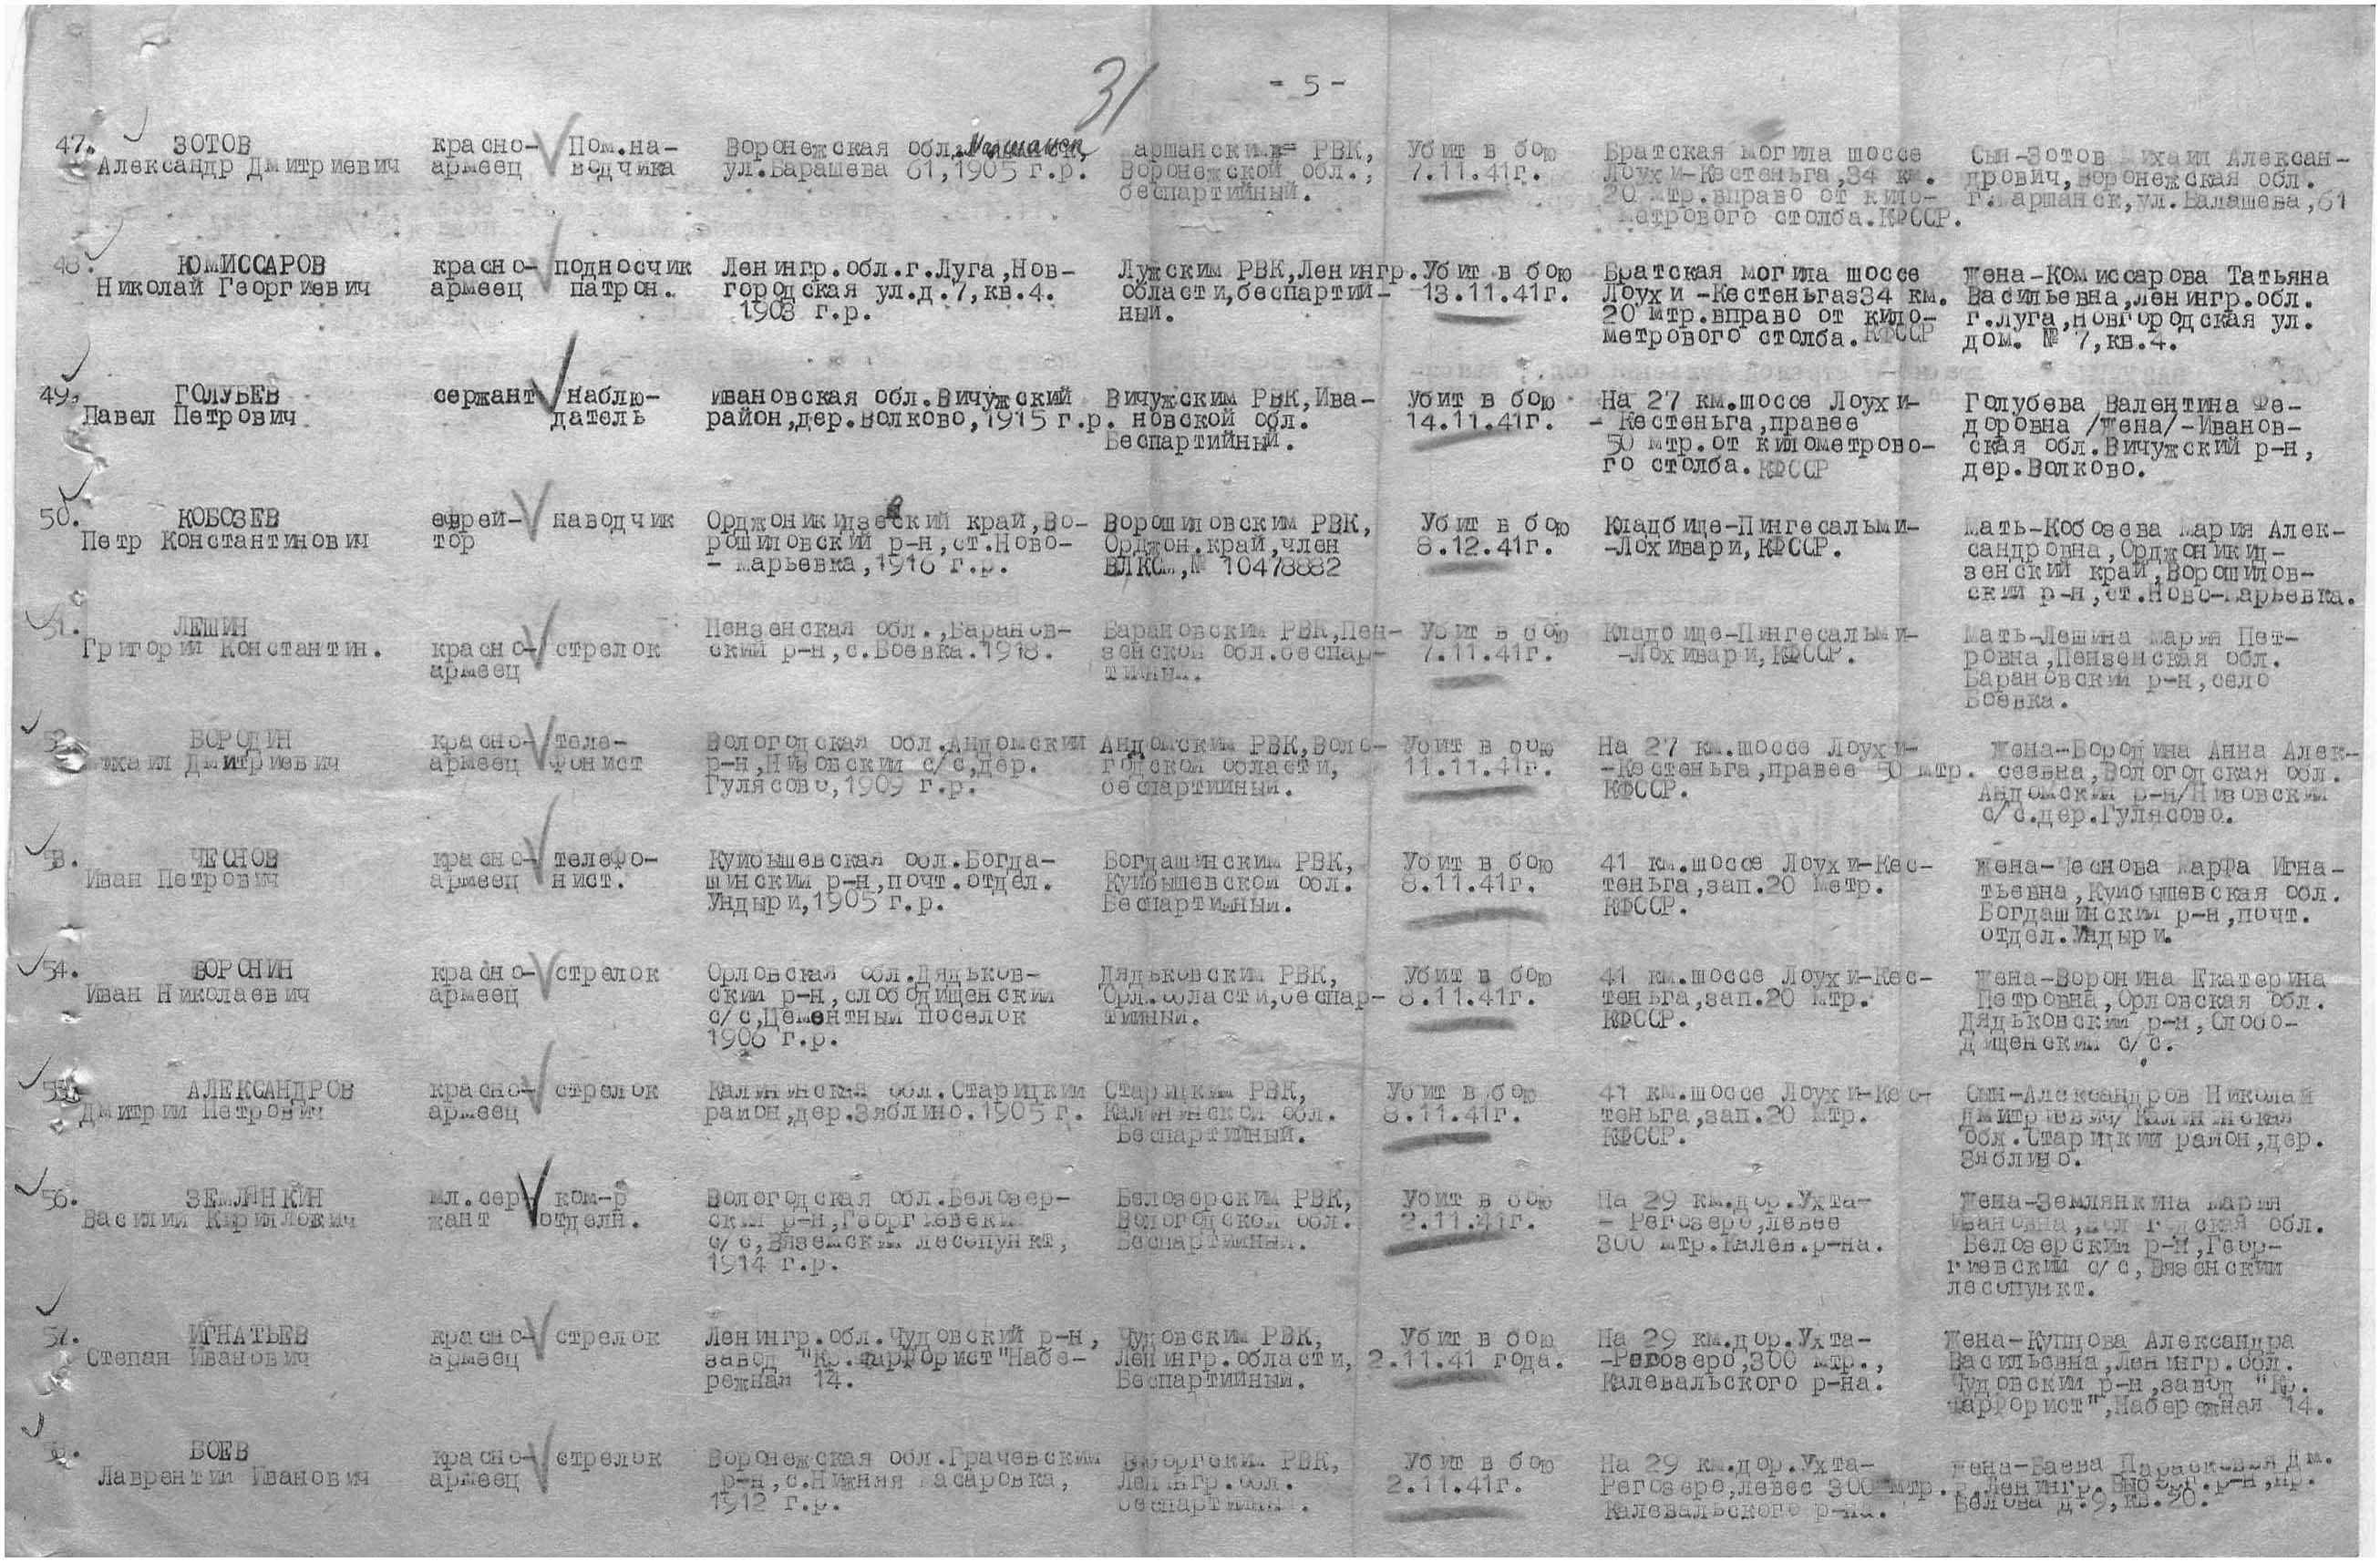 31
- 5 -
47. ЗОТОВ
Александр Дмитриевич
красно-
армеец
Пом.на-
водчика
Воронежская обл.
ул.Барашева 61,1905 г.р.
РВК,
Воронежской обл.,
беспартийный.
Убит в бою
7.11.41г.
Братская могила шоссе
Лоухи-Кестеньга,34 км.
20 мтр.вправо от кило-
метрового столба.КФССР.
Сын-Зотов Михаил Алексан-
дрович,Воронежская обл.
ул.Балашева,61
48. КОМИССАРОВ
Николай Георгиевич
красно-
армеец
подносчик
патрон.
Ленингр.обл.г.Луга,Нов-
городская ул.д.7,кв.4.
1903 г.р.
Лужским РВК,Ленингр.
области,беспартий-
ный.
Убит в бою
13.11.41г.
Братская могила шоссе
Лоухи -Кестеньгаз34 км.
20 мтр.вправо от кило-
метрового столба.КФССР
Жена-Комиссарова Татьяна
Васильевна,Ленингр.обл.
г.Луга,Новгородская ул.
дом. № 7,кв.4.
49. ГОЛУБЕВ
Павел Петрович
сержант
наблю-
датель
Ивановская обл.Вичужский
район,дер.Волково,1915 г.р.
Вичужским РВК,Ива-
новской обл.
Беспартийный.
Убит в бою
14.11.41г.
На 27 км.шоссе Лоухи-
- Кестеньга,правее
50 мтр.от километрово-
го столба.КФССР
Голубева Валентина Фе-
доровна /Жена/-Иванов-
ская обл.Вичужский р-н,
дер.Волково.
50. КОБОЗЕВ
Петр Константинович
ефрей-
тор
наводчик
край,Во-
рошиловский р-н,ст.Ново-
- Марьевка,1916 г.р.
Ворошиловским РВК,
Орджон.край,член
ВЛКСМ,№ 10478882
Убит в бою
8.12.41г.
Кладбище-Пингесальми-
-Лохивари,КФССР.
Мать-Кобозева Мария Алек-
сандровна,Орджоникид-
зенский край,Ворошилов-
ский р-н,ст.Ново-Марьевка.
51. ЛЕШИН
Григорий Константин.
красно-
армеец
стрелок
Пензенская обл.,Баранов-
ский р-н,с.Боевка.1918.
Барановским РВК,Пен-
зенской обл.беспар-
тийный.
Убит в бою
7.11.41г.
Кладбище-Пингесальми-
-Лохивари,КФССР.
Мать-Лешина Мария Пет-
ровна,Пензенская обл.
Барановский р-н,село
Боевка.
52. БОРОДИН
Михаил Дмитриевич
красно-
армеец
теле-
фонист
Вологодская обл.Андомский
р-н,Низовский с/с,дер.
Гулясово,1909 г.р.
Андомским РВК,Воло-
годской области,
беспартийный.
Убит в бою
11.11.41г.
На 27 км.шоссе Лоухи-
-Кестеньга,правее 50 мтр.
КФССР.
Жена-Бородина Анна Алек-
сеевна,Вологодская обл.
Андомский р-н/Низовский
с/с.дер.Гулясово.
53. ЧЕСНОВ
Иван Петрович
красно-
армеец
телефо-
нист.
Куйбышевская обл.Богда-
шинский р-н,почт.отдел.
Ундыри,1905 г.р.
Богдашинским РВК,
Куйбышевской обл.
Беспартийный.
Убит в бою
8.11.41г.
41 км.шоссе Лоухи-Кес-
теньга,зап.20 метр.
КФССР.
Жена-Чеснова Марфа Игна-
тьевна,Куйбышевская обл.
Богдашинский р-н,почт.
отдел.Ундыри.
54. ВОРОНИН
Иван Николаевич
красно-
армеец
стрелок
Орловская обл.Дядьков-
ский р-н,слободищенский
с/с,Цементный поселок
1906 г.р.
Дядьковским РВК,
Орл.области,беспар-
тийный.
Убит в бою
8.11.41г.
41 км.шоссе Лоухи-Кес-
теньга,зап.20 мтр.
КФССР.
Жена-Воронина Екатерина
Петровна,Орловская обл.
Дядьковский р-н,Слобо-
дищенский с/с.
55. АЛЕКСАНДРОВ
Дмитрий Петрович
красно-
армеец
стрелок
Калининская обл.Старицкий
район,дер.Зяблино.1905 г.
Старицким РВК,
Калининской обл.
Беспартийный.
Убит в бою
8.11.41г.
41 км.шоссе Лоухи-Кес-
теньга,зап.20 мтр.
КФССР.
Сын-Александров Николай
Дмитриевич/Калининская
обл.Старицкий район,дер.
Зяблино.
56. ЗЕМЛЯНКИН
Василий Кириллович
мл.сер-
жант
ком-р
отделн.
Вологодская обл.Белозер-
ский р-н,Георгиевский
с/с,Вяземский лесопункт,
1914 г.р.
Белозерским РВК,
Вологодской обл.
Беспартийный.
Убит в бою
2.11.41г.
На 29 км.дор.Ухта-
- Регозеро,левее
300 мтр.Калев.р-на.
Жена-Землянкина Мария
Ивановна,Вологодская обл.
Белозерский р-н,Геор-
гиевский с/с,Вязенский
лесопункт.
57. ИГНАТЬЕВ
Степан Иванович
красно-
армеец
стрелок
Ленингр.обл.Чудовский р-н,
завод "Кр.фарфорист"Набе-
режная 14.
Чудовским РВК,
Ленингр.области,
Беспартийный.
Убит в бою
2.11.41 года.
На 29 км.дор.Ухта-
-Регозеро,300 мтр.,
Калевальского р-на.
Жена-Купцова Александра
Васильевна,Ленингр.обл.
Чудовский р-н,завод "Кр.
Фарфорист",Набережная 14.
58. БОЕВ
Лаврентий Иванович
красно-
армеец
стрелок
Воронежская обл.Грачевский
р-н,с.Нижняя
1912 г.р.
Выборгским РВК,
Ленингр.обл.
беспартийный.
Убит в бою
2.11.41г.
На 29 км.дор.Ухта-
Регозеро,левее 300 мтр.
Калевальского р-на.
Жена-Баева Парасковья Дм.
г.Ленингр.Выборг.р-н,пр.
Белова д.9,кв.20.